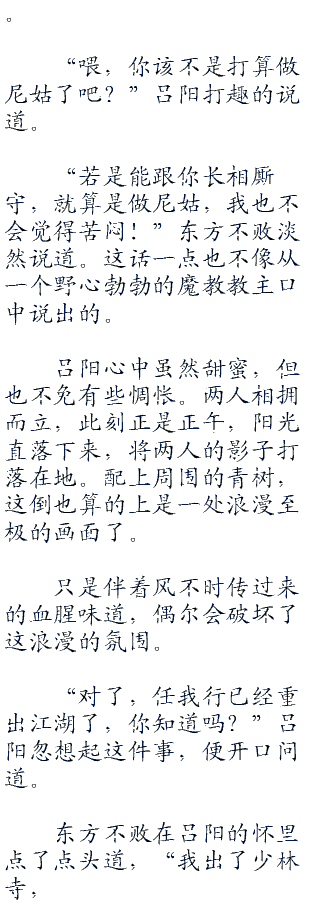 。
“喂，你该不是打算做
尼姑了吧？”吕阳打趣的说
道。
“若是能跟你长相厮
守，就算是做尼姑，我也不
会觉得苦闷！”东方不败淡
然说道。这话一点也不像从
一个野心勃勃的魔教教主口
中说出的。
吕阳心中虽然甜蜜，但
也不免有些惆怅。两人相拥
而立，此刻正是正午，阳光
直落下来，将两人的影子打
落在地。配上周围的青树，
这倒也算的上是一处浪漫至
极的画面了。
只是伴着风不时传过来
的血腥味道，偶尔会破坏了
这浪漫的氛围。
“对了，任我行已经重
出江湖了，你知道吗？”吕
阳忽想起这件事，便开口问
道。
东方不败在吕阳的怀里
点了点头道，“我出了少林
寺，